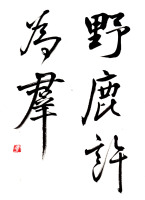 野鹿許
為羣